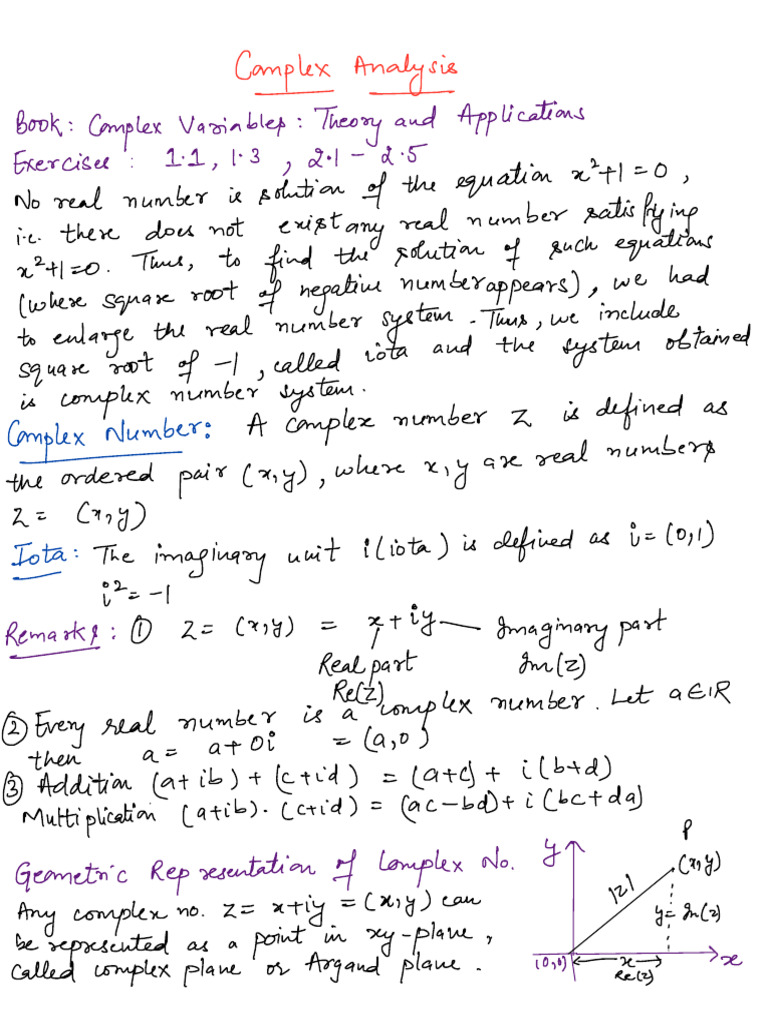 Complex Analysis
Book: Complex Variables: Theory and Applications
Exercises: 1.1, 1.3, 2.1 - 2.5
No real number is solution of the equation x²+1=0,
i.e. there does not exist any real number satisfying
x²+1=0. Thus, to find the solution of such equations
(where square root of negative number appears), we had
to enlarge the real number system. Thus, we include
square root of -1, called iota and the system obtained
is complex number system.
Complex Number: A complex number z is defined as
the ordered pair (x,y), where x,y are real numbers
z = (x,y)
Iota: The imaginary unit i(iota) is defined as i=(0,1)
i²=-1
Remarks: ① z = (x,y) = x+iy — Imaginary part
Real part Im(z)
Re(z)
② Every real number is a complex number. Let a∈IR
then a = a+0i = (a,0)
③ Addition (a+ib)+(c+id) = (a+c)+i(b+d)
Multiplication (a+ib).(c+id) = (ac-bd)+i(bc+da)
Geometric Representation of Complex No.
Any complex no. z = x+iy = (x,y) can
be represented as a point in xy-plane,
called complex plane or Argand plane.
y
P
(x,y)
|z|
y=Im(z)
(0,0)
x
x
Re(z)